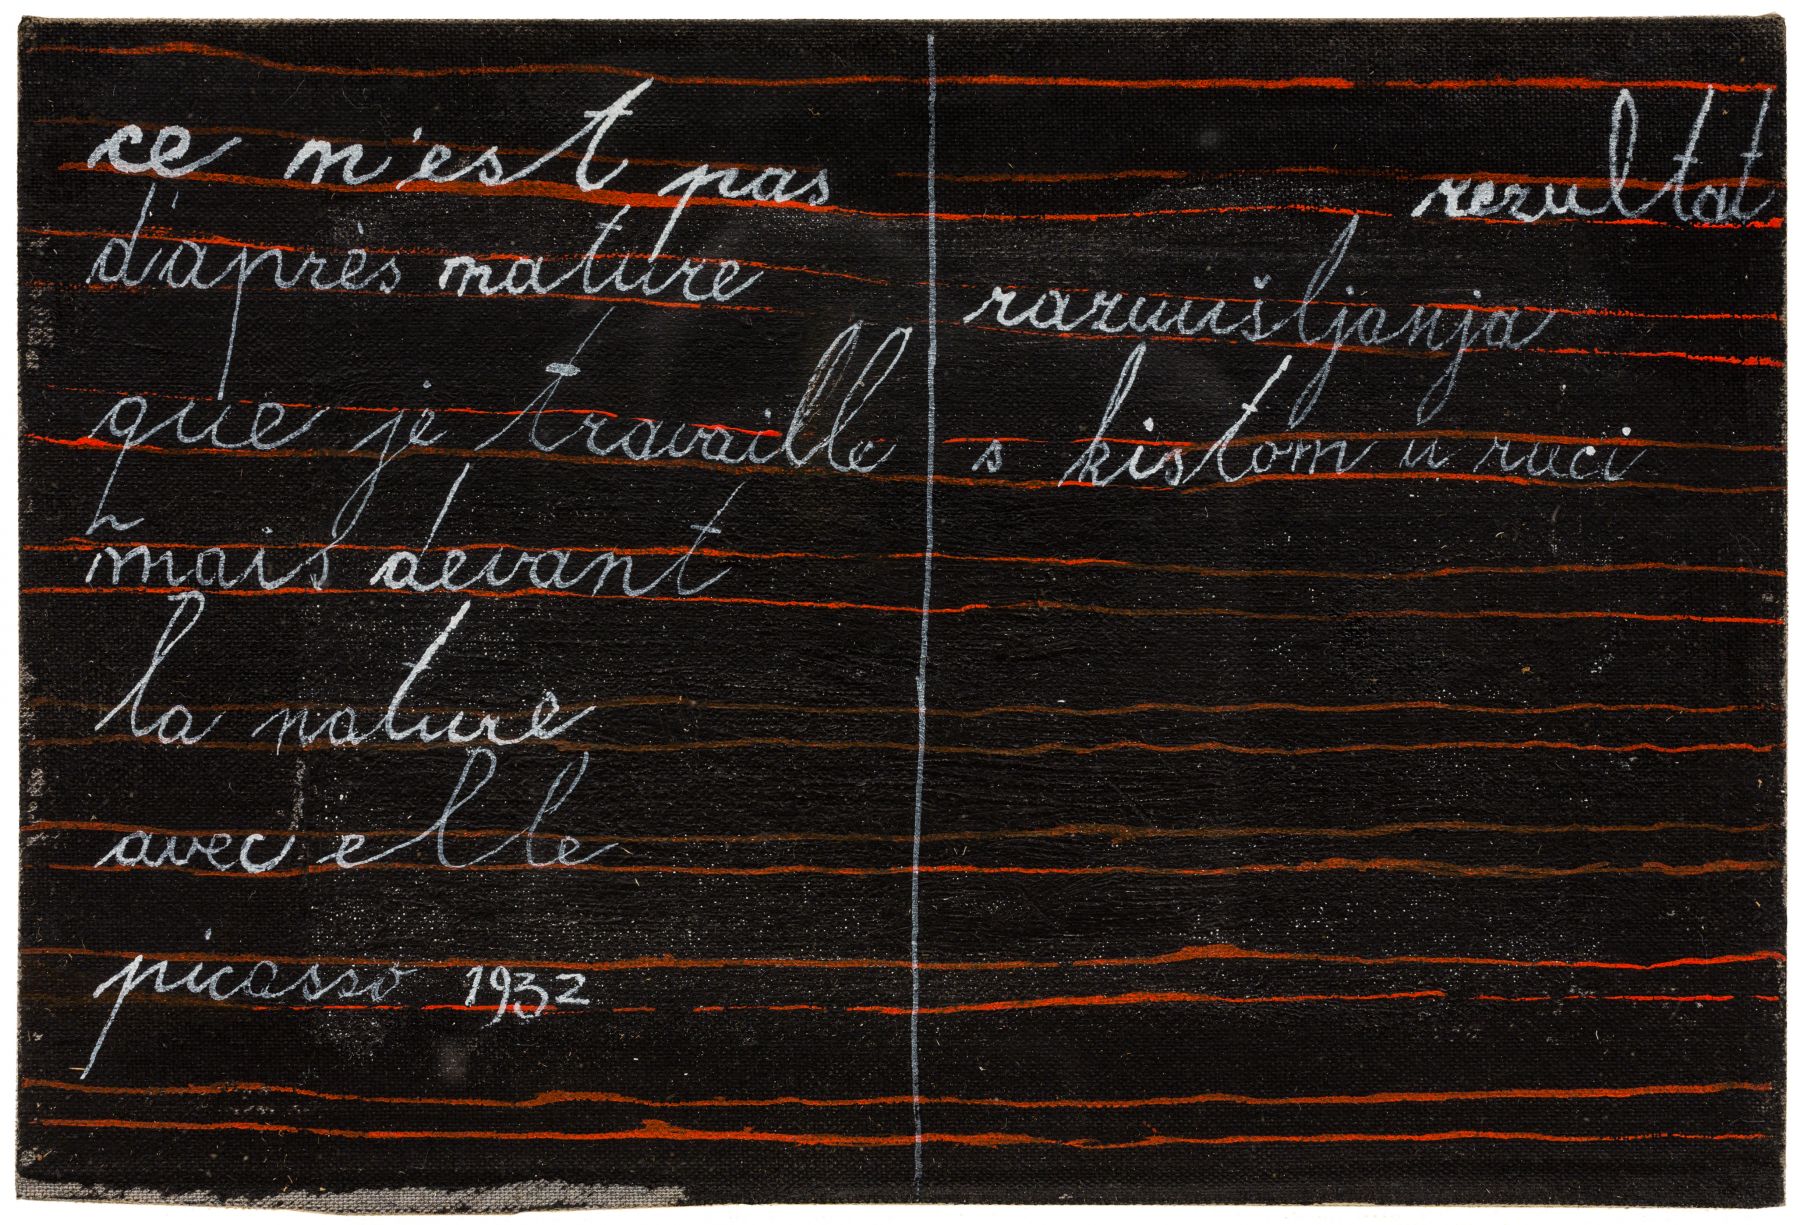 ce n'est pas
d'après nature
que je travaille
mais devant
la nature
avec elle
picasso 1932
rezultat
razmišljanja
s kistom u ruci